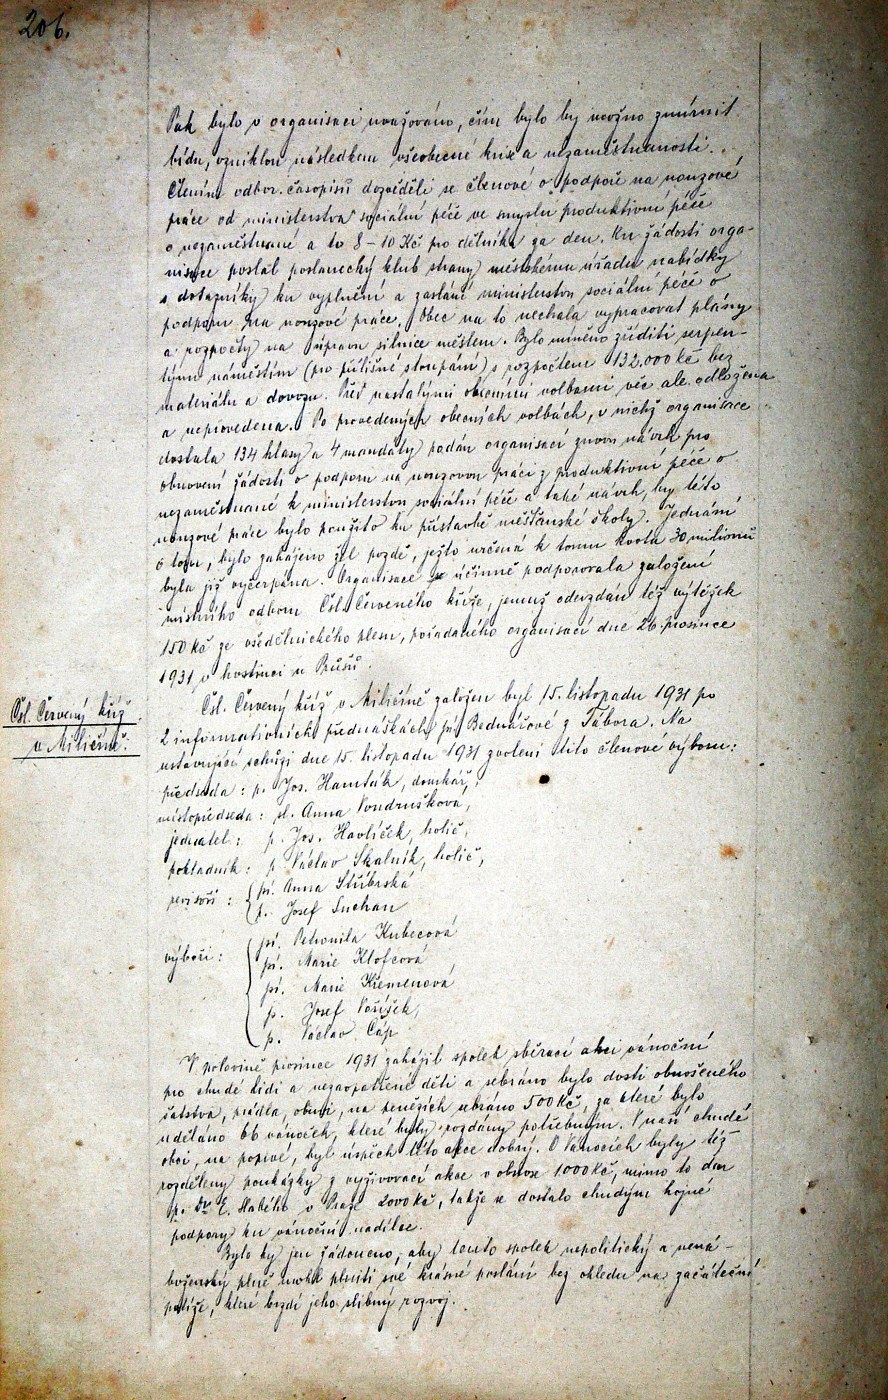 206.
Pak bylo v organisaci uvažováno, čím bylo by možno zmírnit
bídu, vzniklou následkem všeobecné krise a nezaměstnanosti.
Čtením odbor. časopisů dozvěděli se členové o podpoře na nouzové
práce od ministerstva sociální péče ve smyslu produktivní péče
o nezaměstnané a to 8–10 Kč pro dělníka za den. Ku žádosti orga-
nisace poslal poslanecký klub strany městskému úřadu nabídky
s dotazníky ku vyplnění a zaslání ministerstvu sociální péče o
podporu na nouzové práce. Obec na to nechala vypracovat plány
a rozpočty na úpravu silnice městem. Bylo míněno zříditi serpen-
týnu náměstím (pro přílišné stoupání) s rozpočtem 132.000 Kč bez
materiálu a dovozu. Před nastalými obecními volbami věc ale odložena
a neprovedena. Po provedených obecních volbách, v nichž organisace
dostala 134 hlasy a 4 mandáty podán organisací znovu návrh pro
obnovení žádosti o podporu na nouzovou práci z produktivní péče o
nezaměstnané k ministerstvu sociální péče a také návrh, by této
nouzové práce bylo použito ku přístavbě měšťanské školy. Jednání
o tom, bylo zahájeno žel pozdě, ježto určená k tomu kvota 30 milionů
byla již vyčerpána. Organisace účinně podporovala založení
místního odboru Čsl. Červeného kříže, jemuž odevzdán též výtěžek
150 Kč ze všedělnického plesu, pořádaného organisací dne 26. prosince
1931 v hostinci u Průšů.
Čsl. Červený kříž
v Miličíně.
Čsl. Červený kříž v Miličíně založen byl 15. listopadu 1931 po
2 informativních přednáškách pí Bednářové z Tábora. Na
ustavující schůzi dne 15. listopadu 1931 zvoleni tito členové výboru:
předseda: p. Jos. Hamták, domkář,
místopředseda: sl. Anna Vondrušková,
jednatel: p. Jos. Havlíček, holič,
pokladník: p. Václav Skalník, holič,
revisoři: pí. Anna Stúbrská
p. Josef Suchan
výboři: pí. Petronila Kubecová
pí. Marie Klofcová
pí. Marie Křemenová
p. Josef Voříšek,
p. Václav Čáp
V polovině prosince 1931 zahájil spolek sběrací akci vánoční
pro chudé lidi a nezaopatřené děti a sebráno bylo dosti obnošeného
šatstva, prádla, obuvi, na penězích sebráno 500 Kč, za které bylo
uděláno 66 vánoček, které byly rozdány potřebným. V naší chudé
obci, na poprvé, byl úspěch této akce dobrý. O Vánocích byly též
rozděleny poukázky z vyživovací akce v obnose 1000 Kč, mimo to dar
p. Dr E. Habého v Praze 2000 Kč, takže se dostalo chudým hojné
podpory ku vánoční nadílce.
Bylo by jen žádoucno, aby tento spolek nepolitický a nená-
boženský plně mohl plniti své krásné poslání bez ohledu na začáteční
potíže, které brzdí jeho slibný rozvoj.